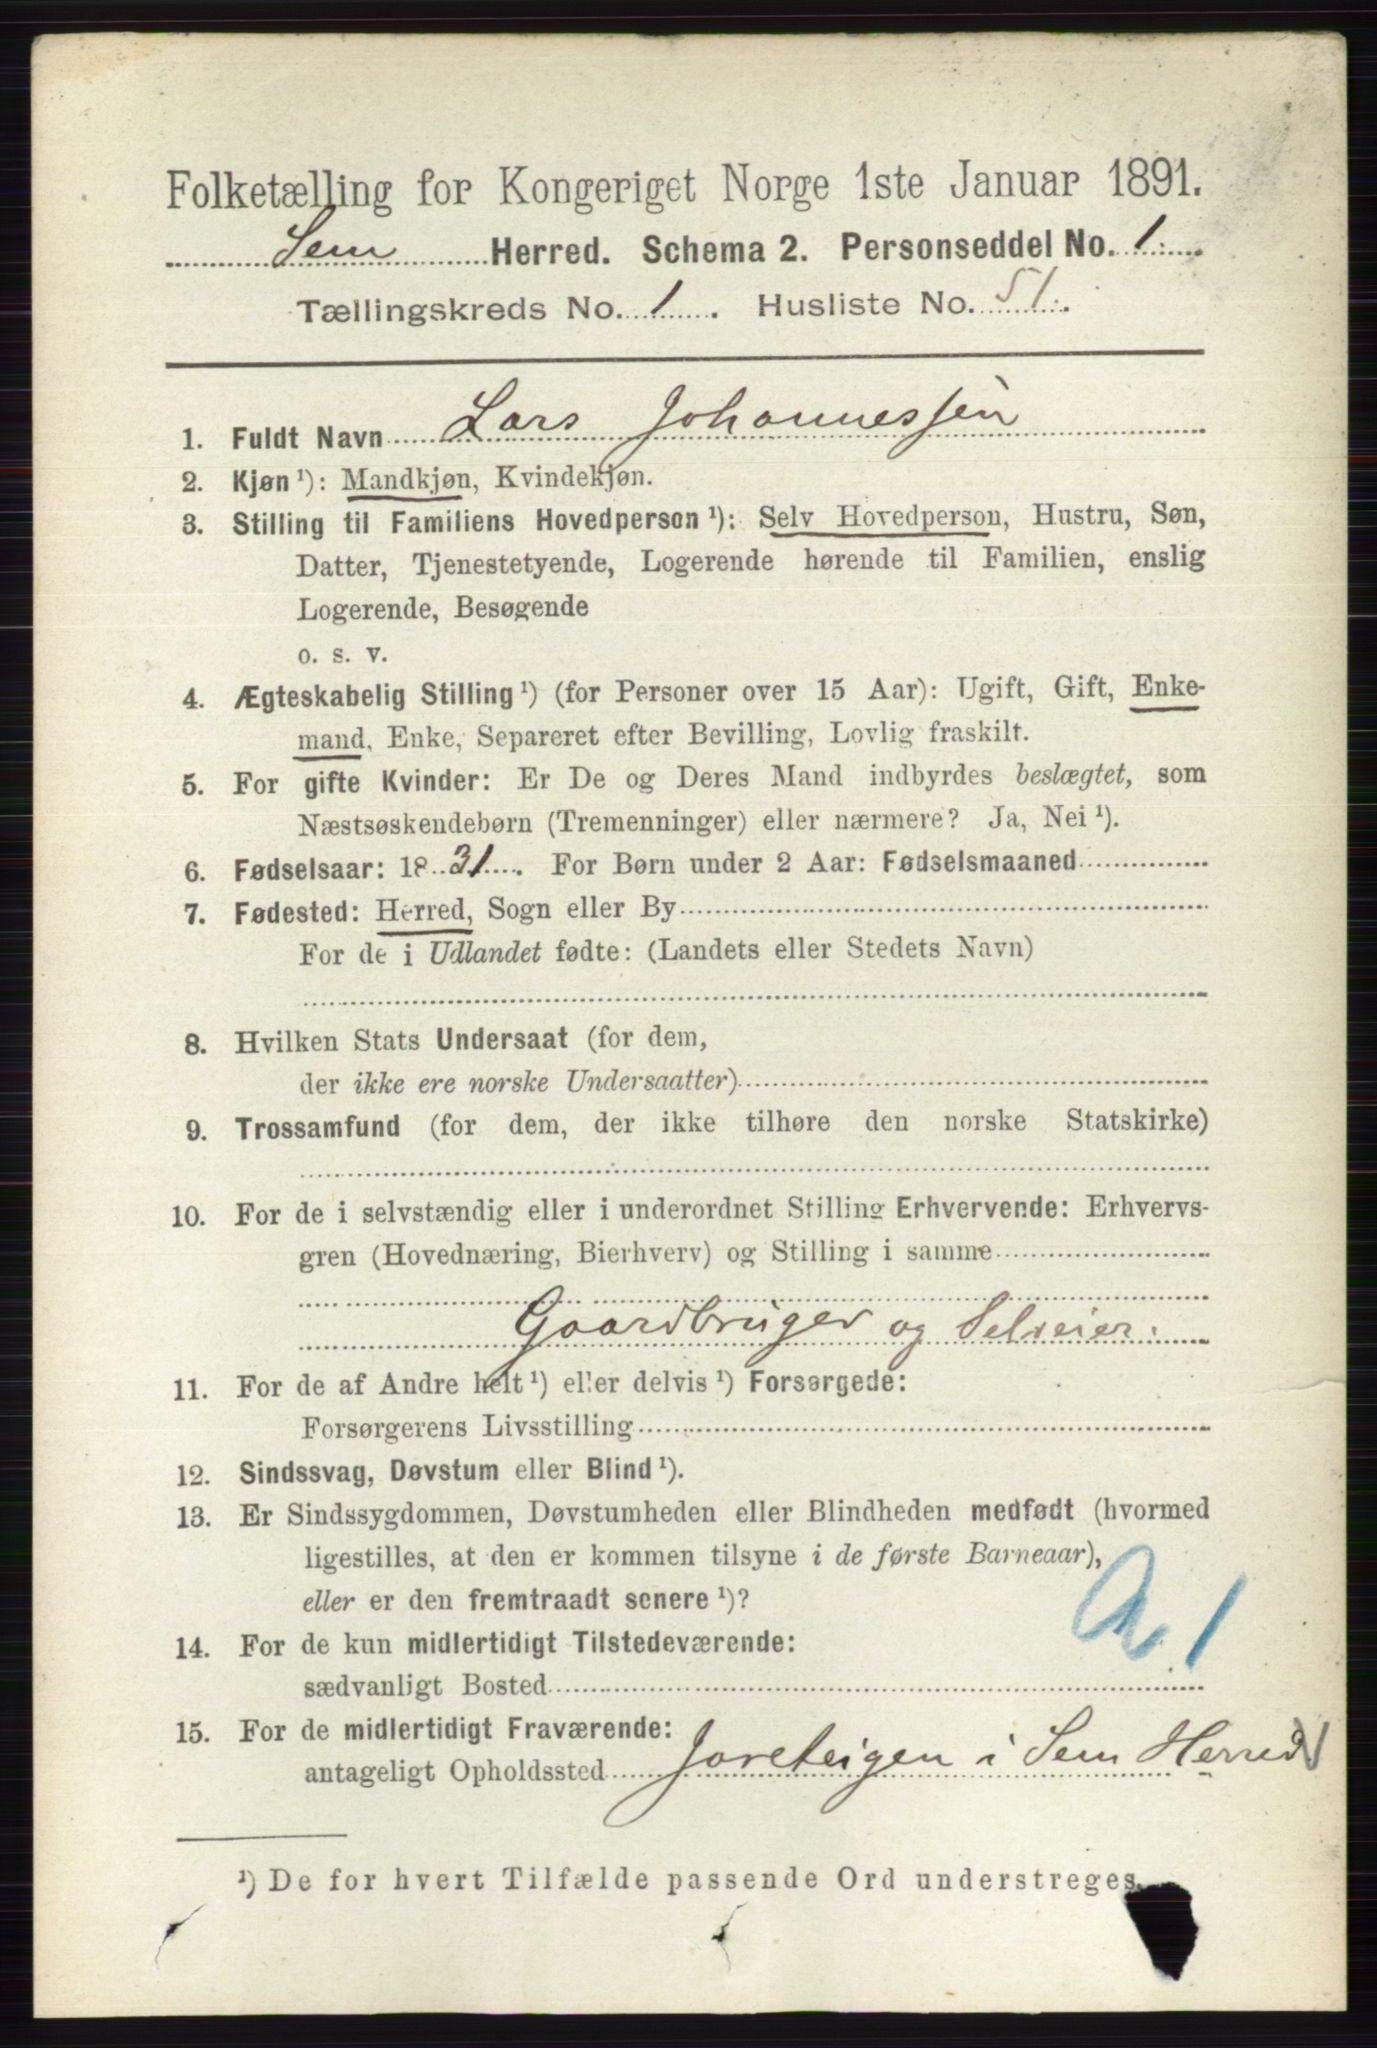 Folketælling for Kongeriget Norge 1ste Januar 1891.
Sem Herred. Schema 2. Personseddel No. 1.
Tællingskreds No. 1. Husliste No. 51.
1. Fuldt Navn Lars Johannessen
2. Kjøn ¹): Mandkjøn, Kvindekjøn.
3. Stilling til Familiens Hovedperson ¹): Selv Hovedperson, Hustru, Søn,
Datter, Tjenestetyende, Logerende hørende til Familien, enslig
Logerende, Besøgende
o. s. v.
4. Ægteskabelig Stilling ¹) (for Personer over 15 Aar): Ugift, Gift, Enke-
mand, Enke, Separeret efter Bevilling, Lovlig fraskilt.
5. For gifte Kvinder: Er De og Deres Mand indbyrdes beslægtet, som
Næstsøskendebørn (Tremenninger) eller nærmere? Ja, Nei ¹).
6. Fødselsaar: 1831. For Børn under 2 Aar: Fødselsmaaned
7. Fødested: Herred, Sogn eller By
For de i Udlandet fødte: (Landets eller Stedets Navn)
8. Hvilken Stats Undersaat (for dem,
der ikke ere norske Undersaatter)
9. Trossamfund (for dem, der ikke tilhøre den norske Statskirke)
10. For de i selvstændig eller i underordnet Stilling Erhvervende: Erhvervs-
gren (Hovednæring, Bierhverv) og Stilling i samme
Gaardbruger og Selveier.
11. For de af Andre helt ¹) eller delvis ¹) Forsørgede:
Forsørgerens Livsstilling
12. Sindssvag, Døvstum eller Blind ¹).
13. Er Sindssygdommen, Døvstumheden eller Blindheden medfødt (hvormed
ligestilles, at den er kommen tilsyne i de første Barneaar),
eller er den fremtraadt senere ¹)?
14. For de kun midlertidigt Tilstedeværende:
sædvanligt Bosted
15. For de midlertidigt Fraværende:
antageligt Opholdssted Jareteigen i Sem Herred
¹) De for hvert Tilfælde passende Ord understreges.